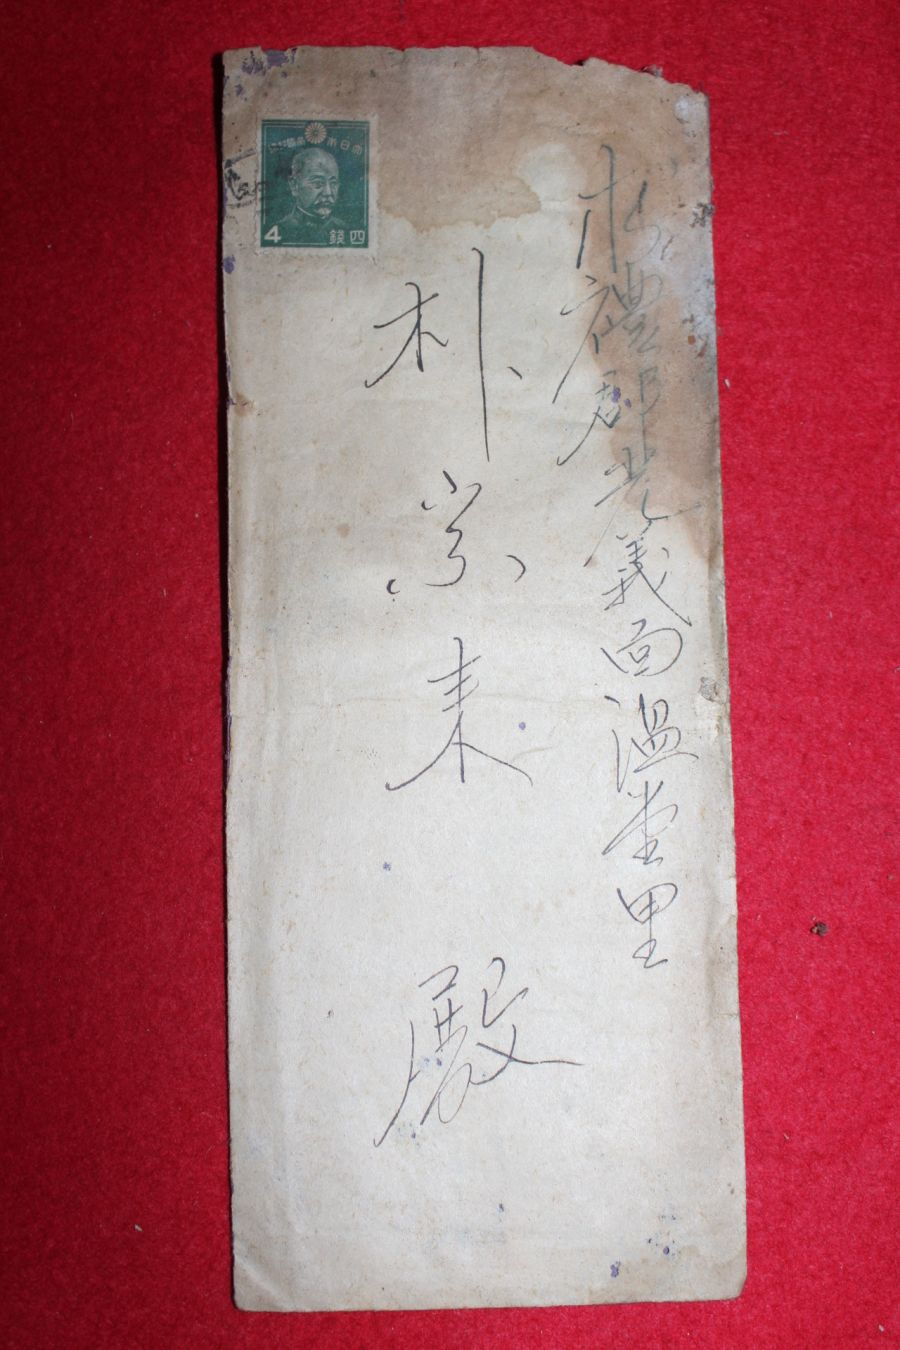 大日本帝國郵便
4 四錢
求禮郡光義面溫堂里
朴宗来 殿